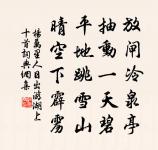 放閘冷泉亭
抽動一天碧
平地跳雪山
晴空下霹雳
楊萬里人日出游湖上
十首詞典網集